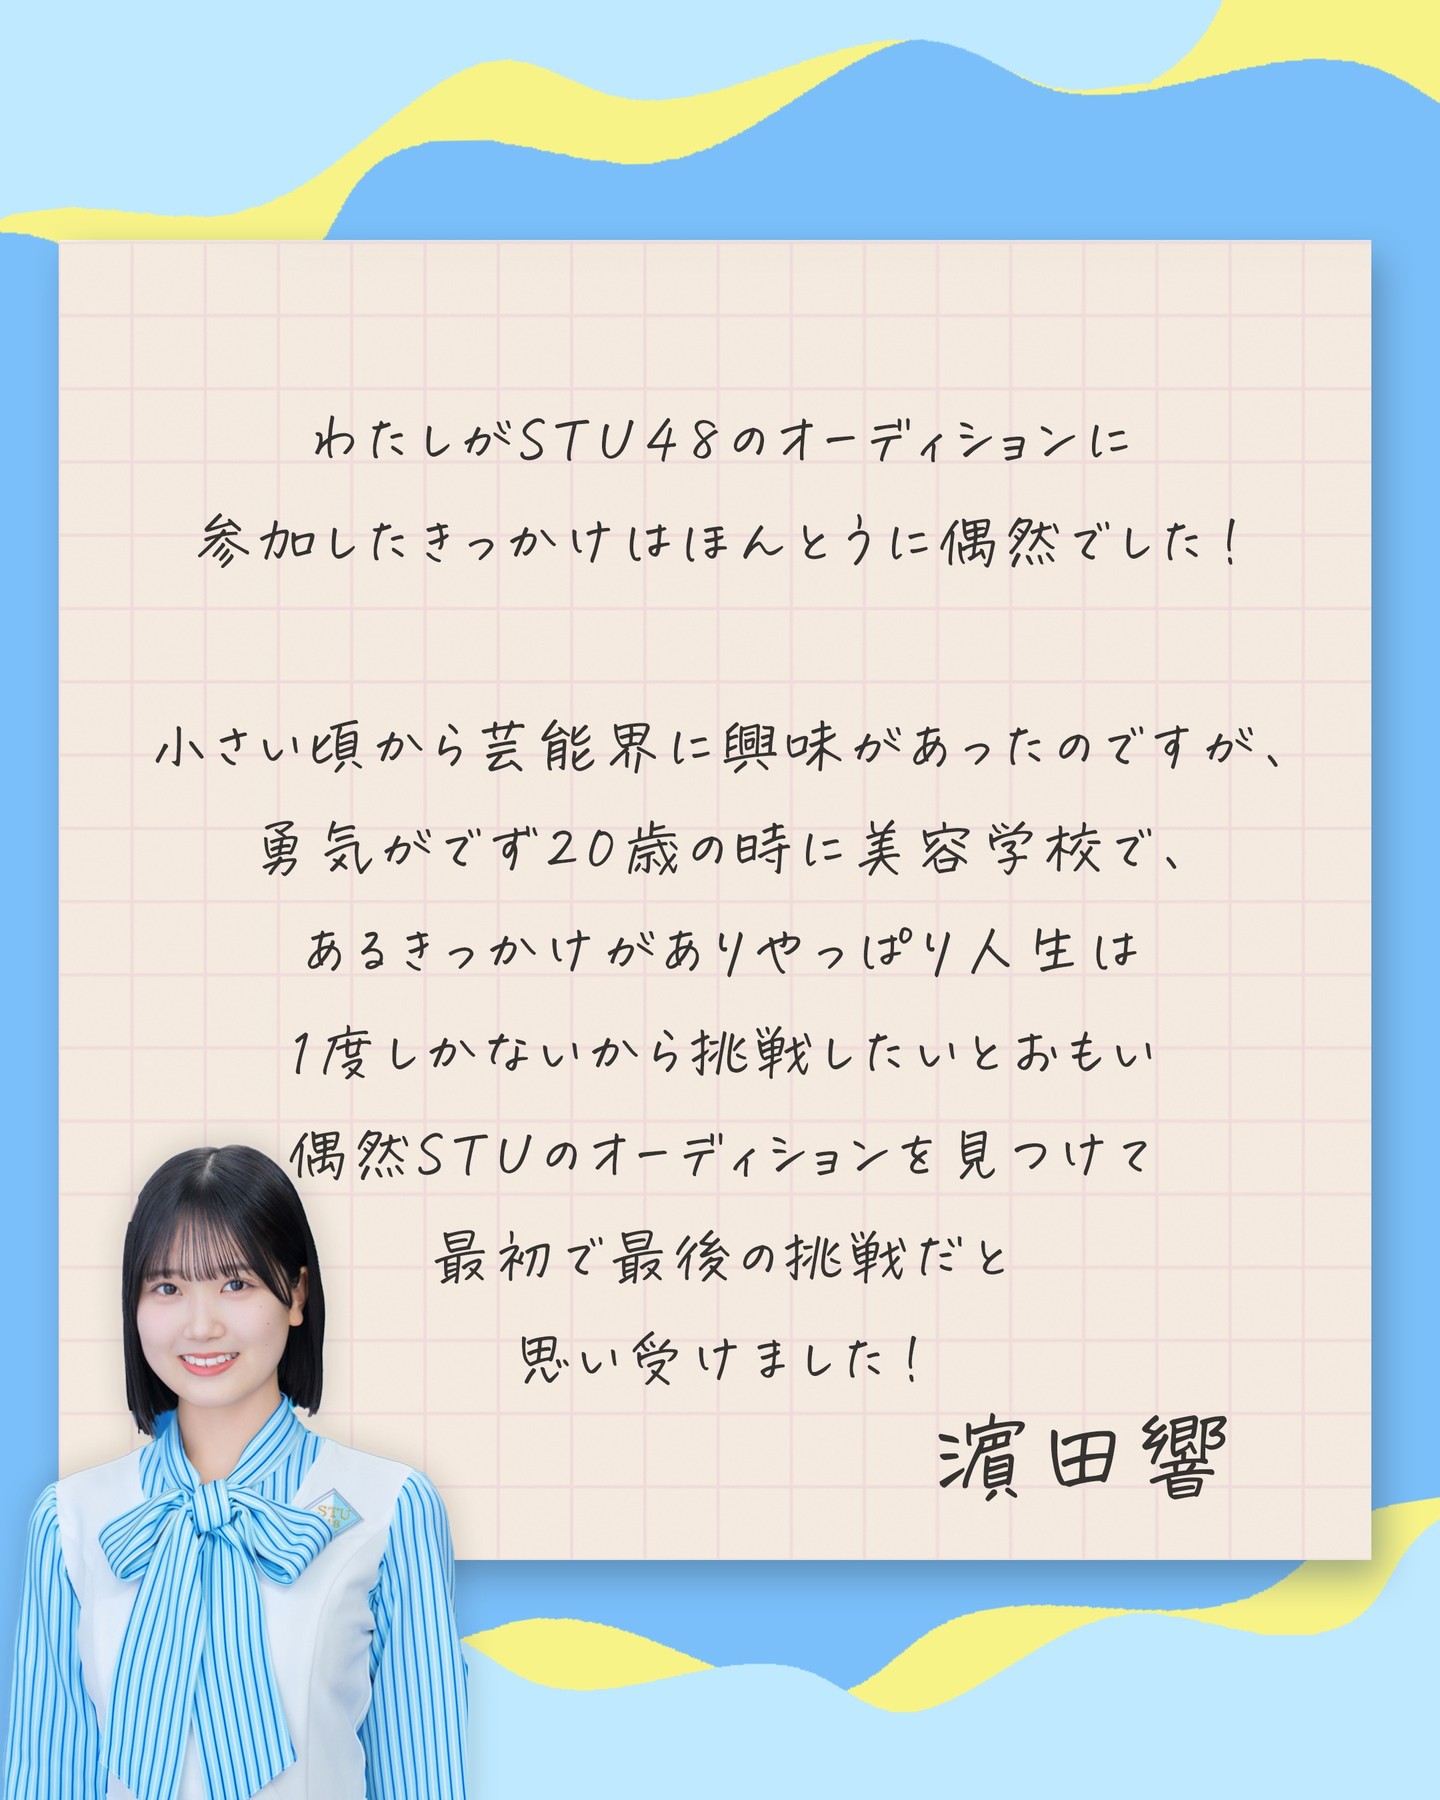 わたしがSTU48のオーディションに
参加したきっかけはほんとうに偶然でした！
小さい頃から芸能界に興味があったのですが、
勇気がでず20歳の時に美容学校で、
あるきっかけがありやっぱり人生は
1度しかないから挑戦したいとおもい
偶然STUのオーディションを見つけて
最初で最後の挑戦だと
思い受けました！
濵田響
STU
48